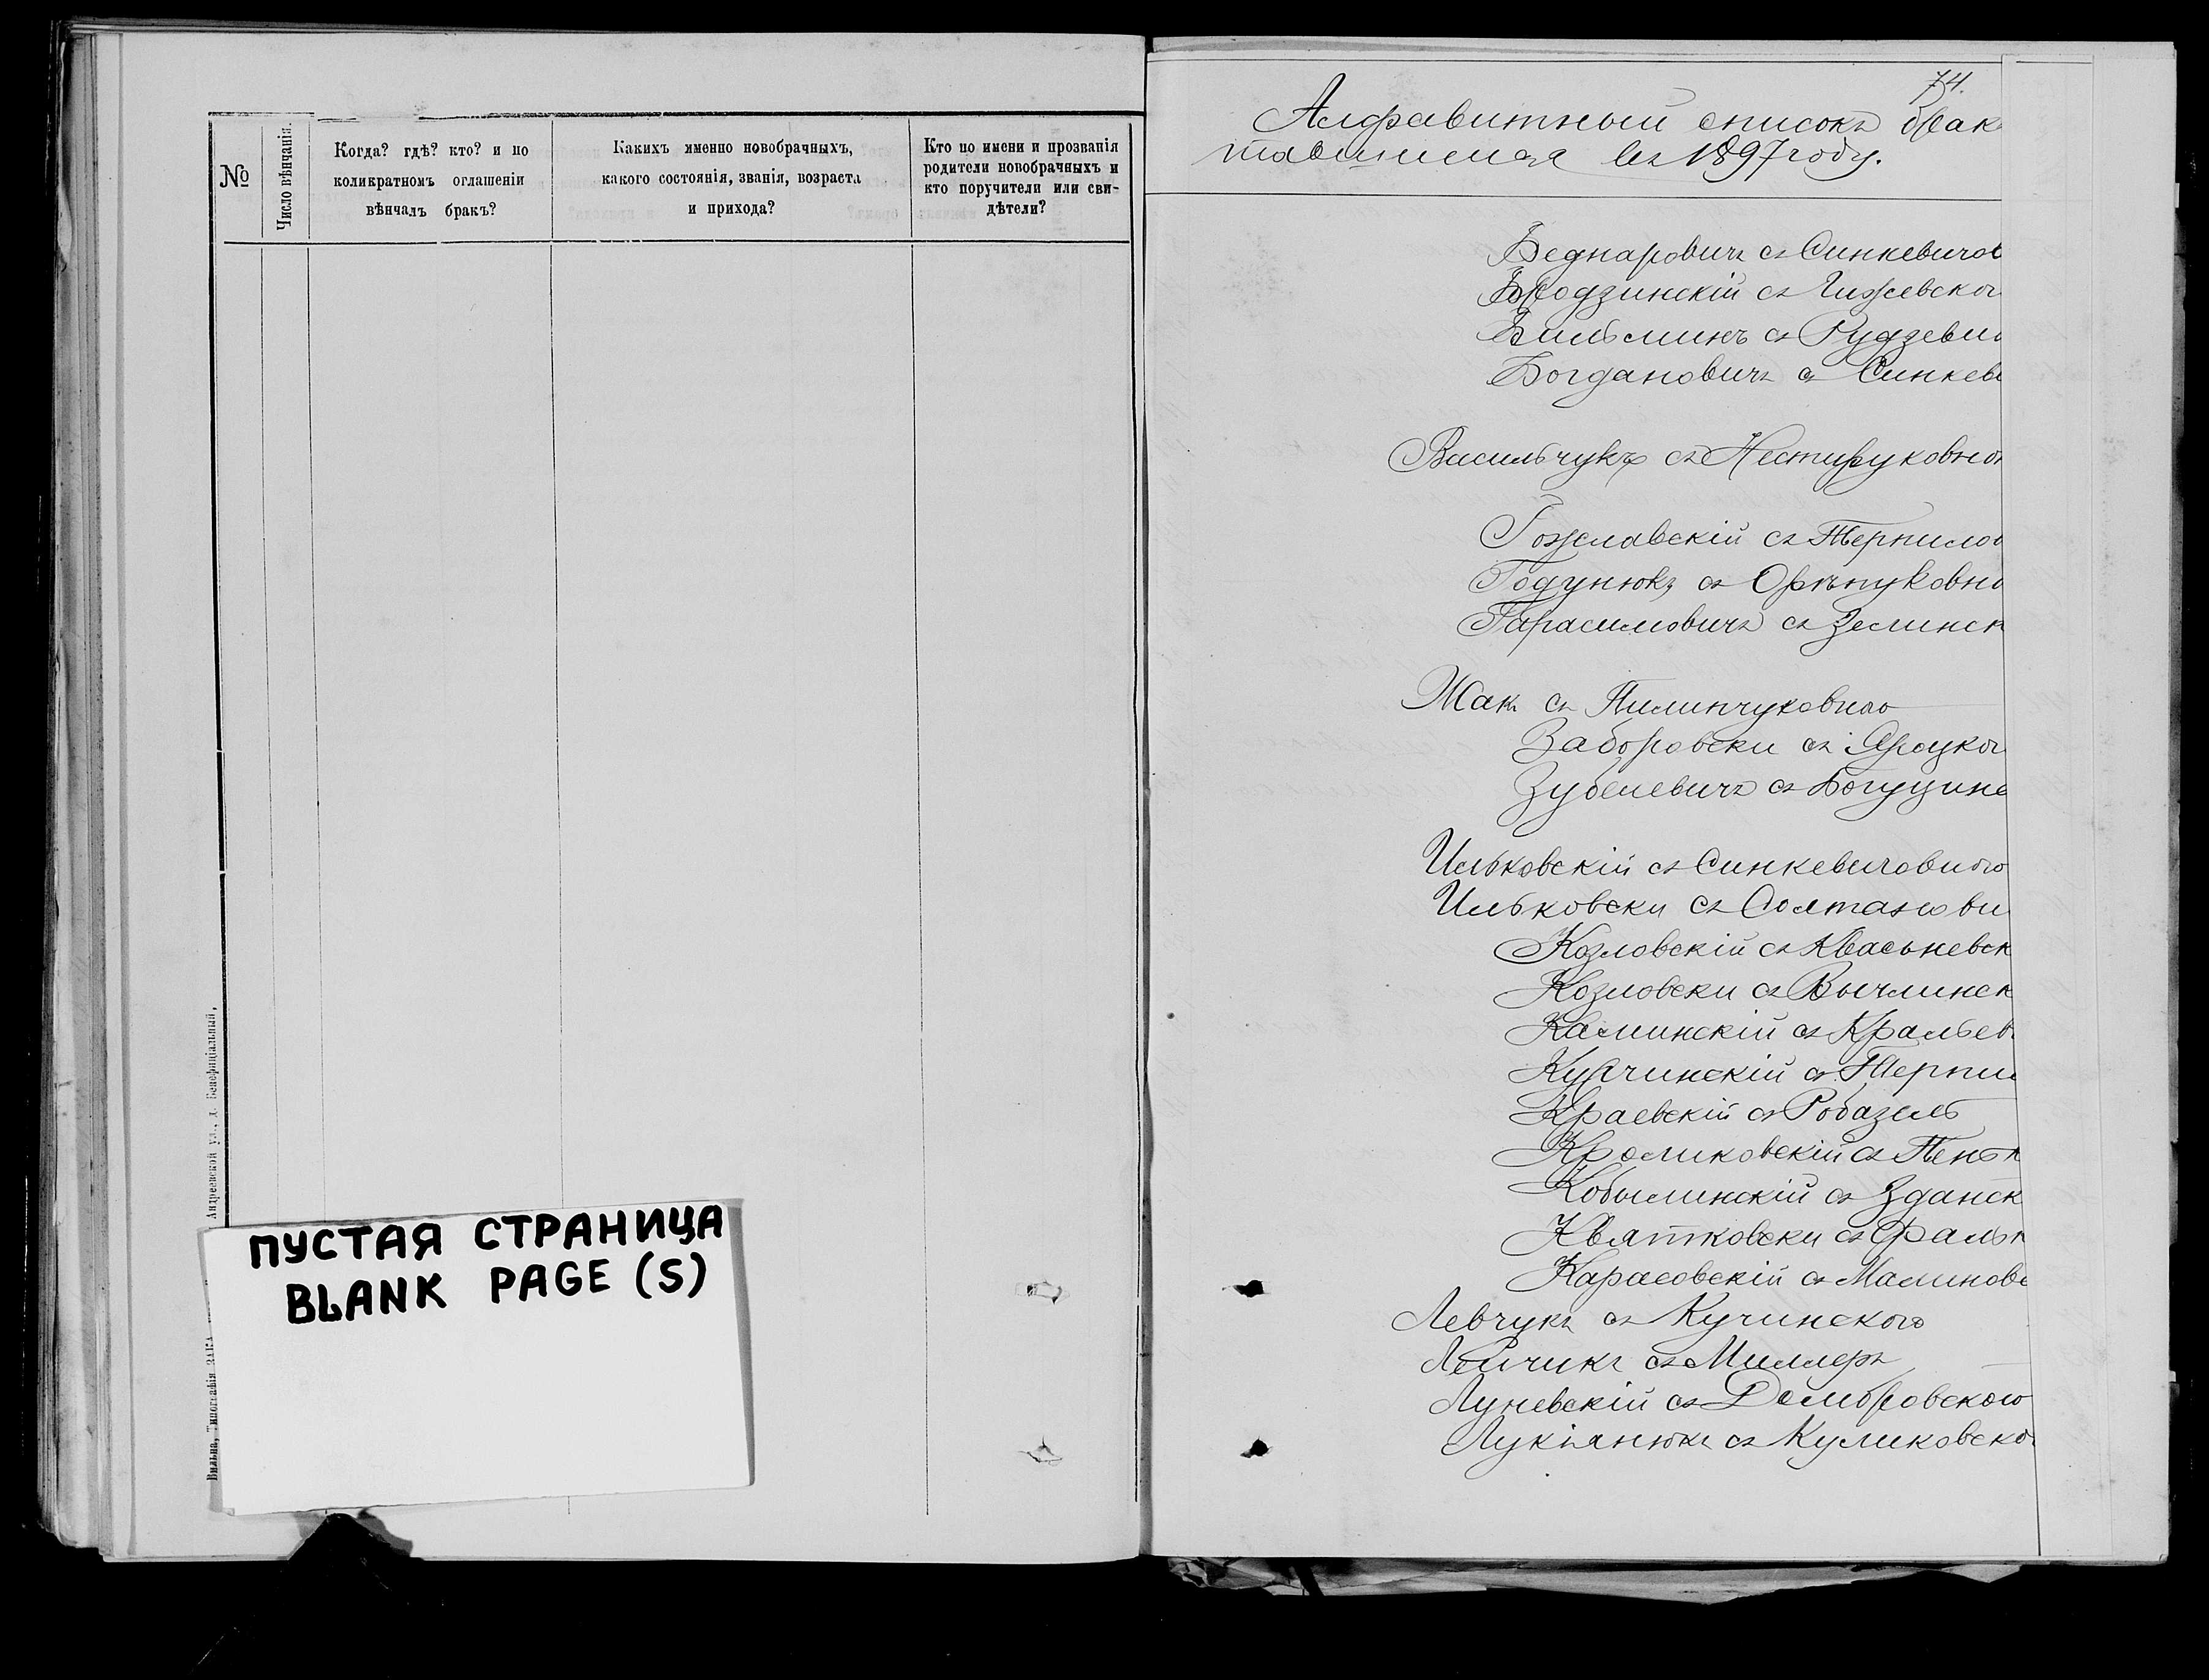 №
Число вѣнчанія.
Когда? гдѣ? кто? и по
коликратномъ оглашеніи
вѣнчалъ бракъ?
Какихъ именно новобрачныхъ,
какого состоянія, званія, возраста
и прихода?
Кто по имени и прозванія
родители новобрачныхъ и
кто поручители или сви-
дѣтели?
Андреевской ул., д. Бенефиціальный,
Вильна, Типографія
ПУСТАЯ СТРАНИЦА
BLANK PAGE (S)
74.
Алфавитный списокъ брак
въ 1897 году.
Беднаровичъ съ Синкевичов
Бродзинскій съ Чижевско
съ Рудзеви
Богдановичъ съ Синкев
Васильчукъ съ Нестируковно
Гожелавскій съ Терпилов
Годунюкъ съ
Гарасимовичъ съ Зелинск
Жакъ съ Пилипчуковною
Заборовски съ Яроцко
Зубелевичъ съ Богуцин
Ильковскій съ Синкевичовною
Ильковски съ Солтанови
Козловскій съ Квасьневск
Козловски съ Вычлинск
Калинскій съ Кральев
Купчинскій съ Терпи
Краевскій съ Робазель
Кроликовскій съ Пеньк
Кобылинскій съ Зданск
Квятковски съ Фальк
Карасовскій съ Малиновс
Левчукъ съ Кучинского
Лейчикъ съ Миллеръ
Луневскій съ Домбровского
Лукіанюкъ съ Куликовско